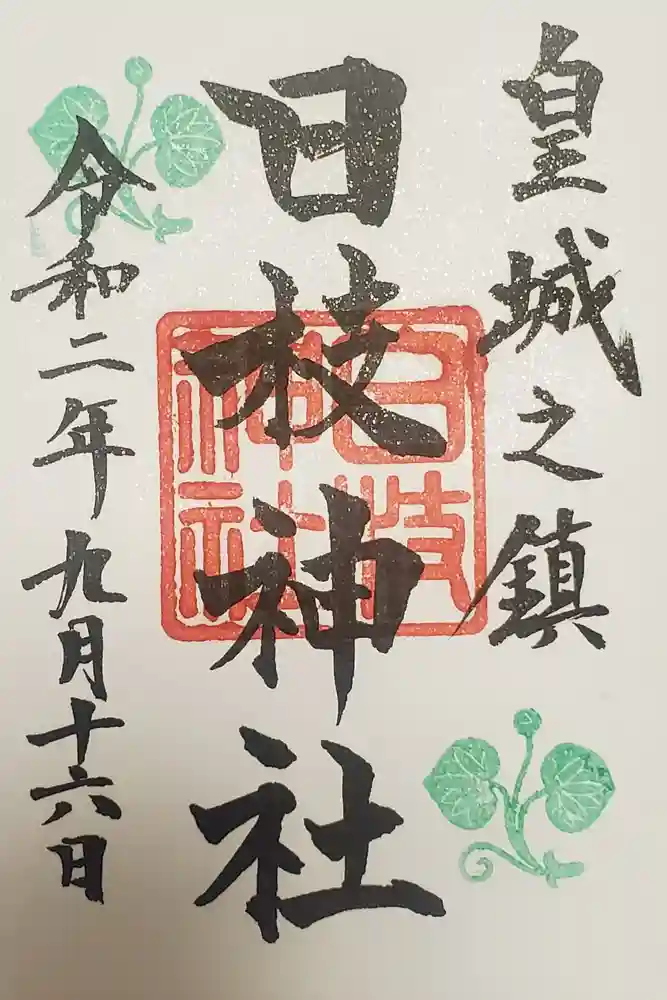 皇城之鎮
日枝神社
日枝神社
令和二年九月十六日